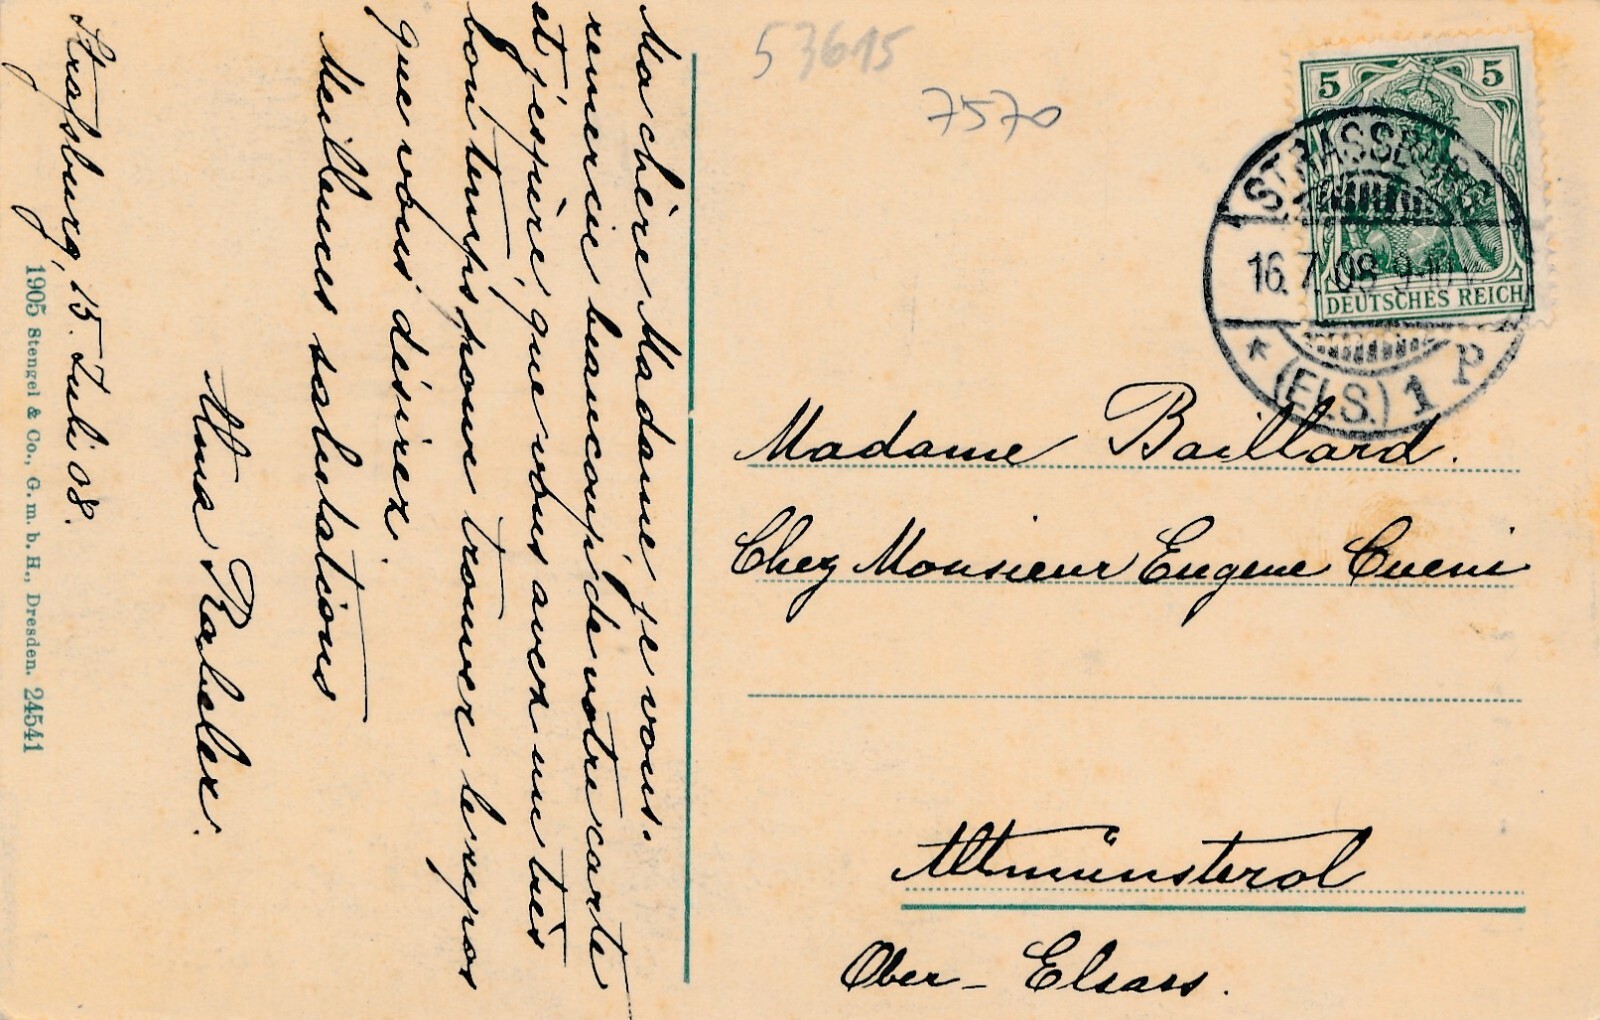 53615
7570
5 5
DEUTSCHES REICH
STRASSBURG
16.7.08 9-10V
* (ELS.) 1 P
Madame Baillard.
Chez Monsieur Eugene Cueni
Altmünsterol
Ober-Elsass.
Ma chère Madame, je vous
remercie beaucoup de votre carte
et j'espère, que vous avez un très
bon temps pour trouver le repos
que vous désirez
Meilleures salutations
Anna Rabeler.
Strassburg, 15. Juli 08.
1905 Stengel & Co., G. m. b. H., Dresden. 24541